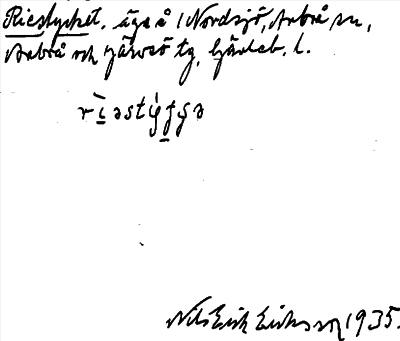 Riestycket, äga å i Nordsjö, Arbrå sn,
Arbrå och Järvsö tg, Gävleb. l.
Nils Erik Eriksson 1935.